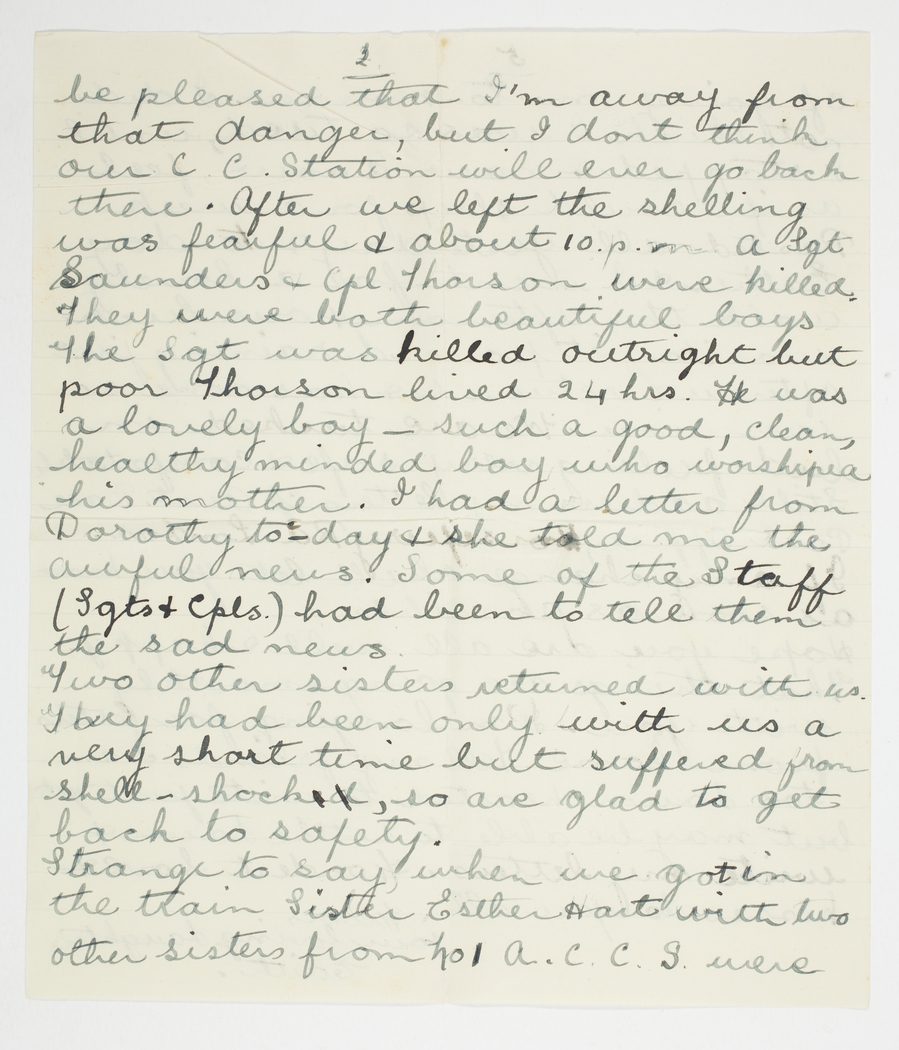 2
be pleased that I'm away from
that danger, but I dont think
our C. C. Station will ever go back
there. After we left the shelling
was fearful & about 10.p.m. a Sgt
Saunders & Cpl Thorson were killed.
They were both beautiful boys
The Sgt was killed outright but
poor Thorson lived 24 hrs. He was
a lovely boy – such a good, clean,
healthy minded boy who worshiped
his mother. I had a letter from
Dorothy to-day & she told me the
awful news. Some of the Staff
(Sgts & Cpls.) had been to tell them
the sad news.
Two other sisters returned with us.
They had been only with us a
very short time but suffered from
shell-shock, so are glad to get
back to safety.
Strange to say, when we got in
the train Sister Esther Hart with two
other sisters from No 1 A. C. C. S. were